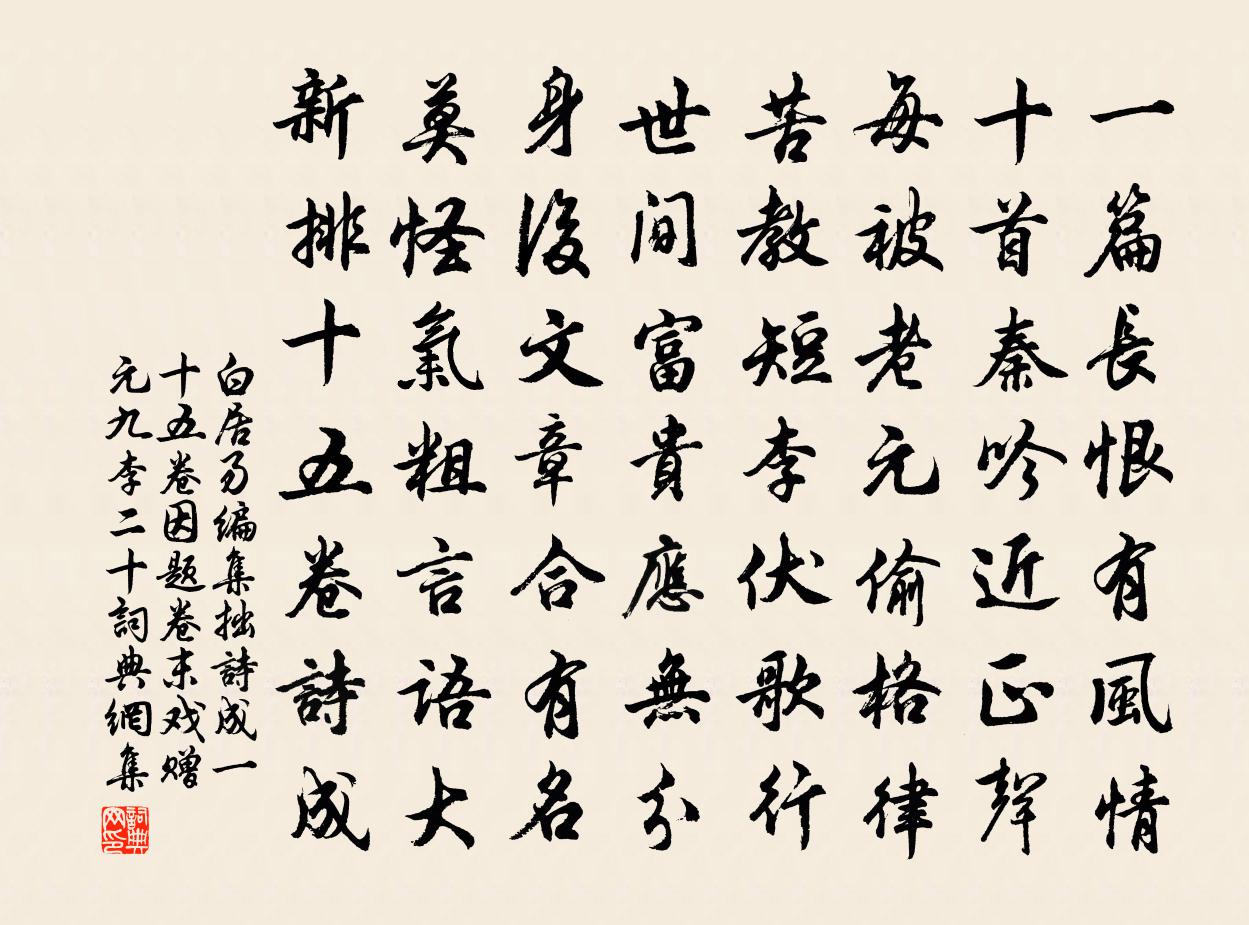 一篇長恨有風情
十首秦吟近正聲
每被老元偷格律
苦教短李伏歌行
世間富貴應無分
身後文章合有名
莫怪氣粗言語大
新排十五卷詩成
白居易编集拙詩成一
十五卷因题卷末戏赠
元九李二十詞典網集
詞典
网印